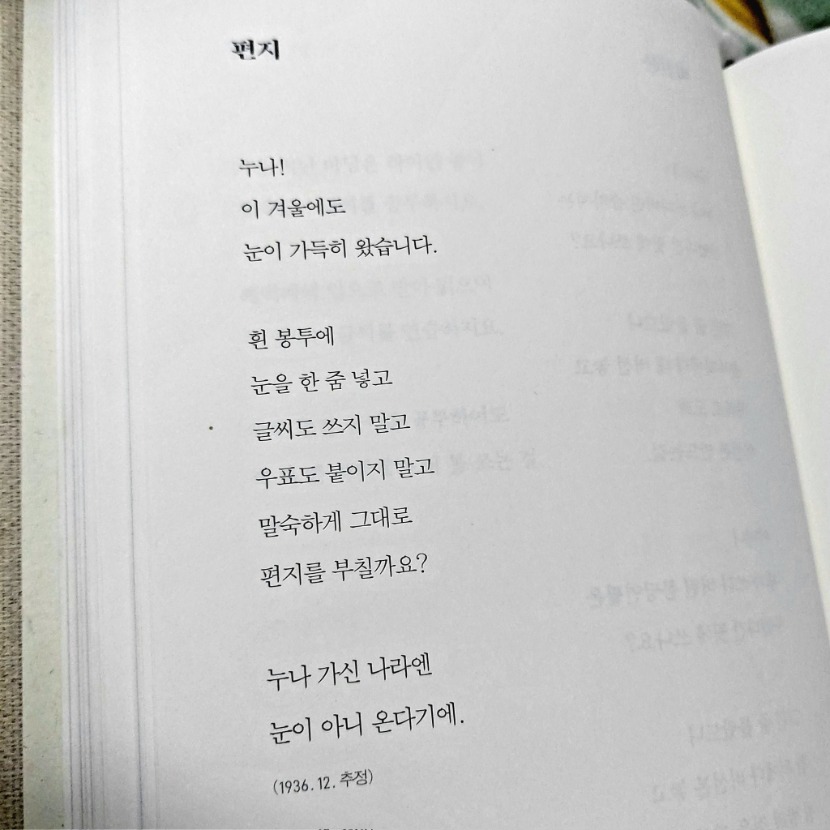 편지
누나!
이 겨울에도
눈이 가득히 왔습니다.
흰 봉투에
눈을 한 줌 넣고
글씨도 쓰지 말고
우표도 붙이지 말고
말숙하게 그대로
편지를 부칠까요?
누나 가신 나라엔
눈이 아니 온다기에.
(1936.12. 추정)